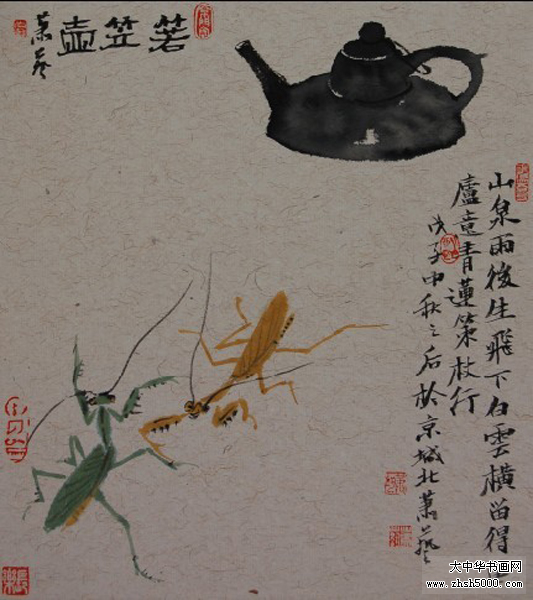 若笠壺
蕭藝
山泉雨後生飛下白雲橫留得
廬意青蓮策杖行
戊子中秋之后於京城北蕭藝
大中华书画网
www.zhsh5000.com